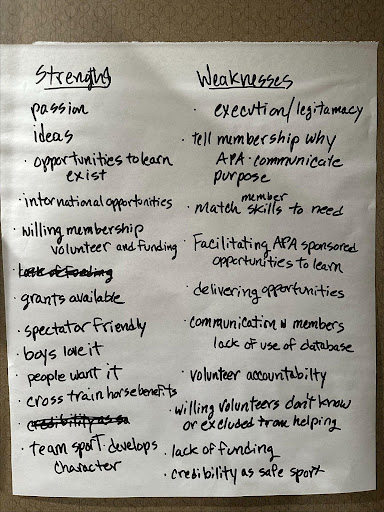 Strengths
passion
ideas
· opportunities to learn
exist
· international opportunities
· willing membership
volunteer and funding
· lack of funding
· grants available
· spectator friendly
· boys love it
· people want it
· cross train horse benefits
· credibility as sa
· team sport · develops
character
Weaknesses
· execution/legitamacy
· tell membership why
APA · communicate
purpose
· match member skills to need
· Facilitating APA sponsored
opportunities to learn
· delivering opportunities
· communication w members
lack of use of database
· volunteer accountabilty
· willing volunteers don't know
or excluded from helping
· lack of funding
· credibility as safe sport